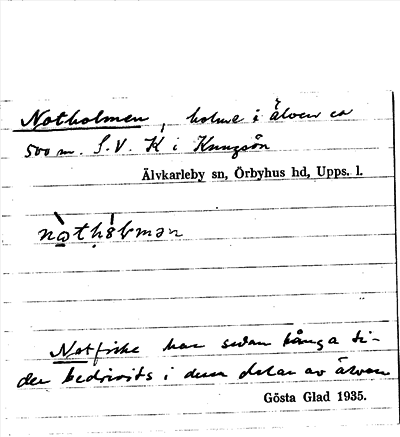 Notholmen, holme i älven ca
500 m. S.V. K i Kungsön
Älvkarleby sn, Örbyhus hd, Upps. l.
Notfiske har sedan långa ti-
der bedrivits i denna delen av älven
Gösta Glad 1935.